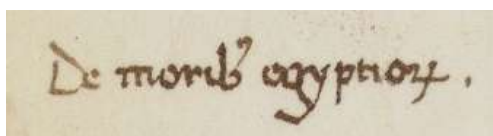 De moribꝰ egyptioꝝ.